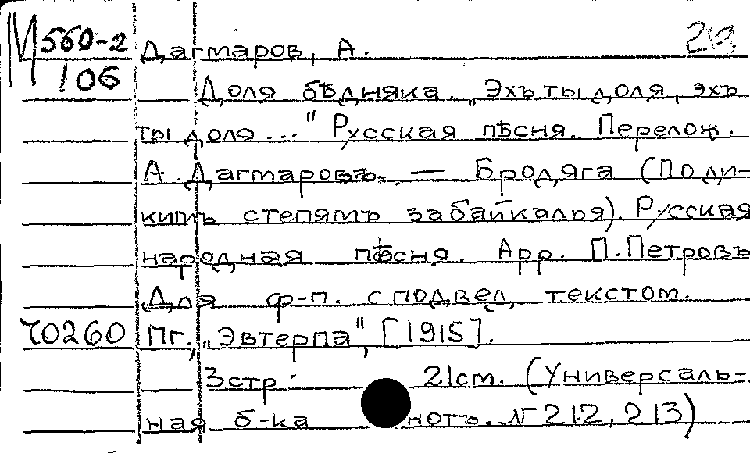 М 560-2 Дагмаров, А. 213
106 Доля бѣдняка. „Эхъ ты доля, эхъ
ты доля..." Русская пѣсня. Перелож.
А. Дагмаровъ. — Бродяга (По ди-
кимъ степямъ забайкалья). Русская
народная пѣсня. Арр. П. Петровъ
Для ф-п. с подвел. текстом.
70260 Пг., „Эвтерпа", [1915].
3 стр. 21 см. (Универсаль-
ная б-ка нотъ. № 212, 213)